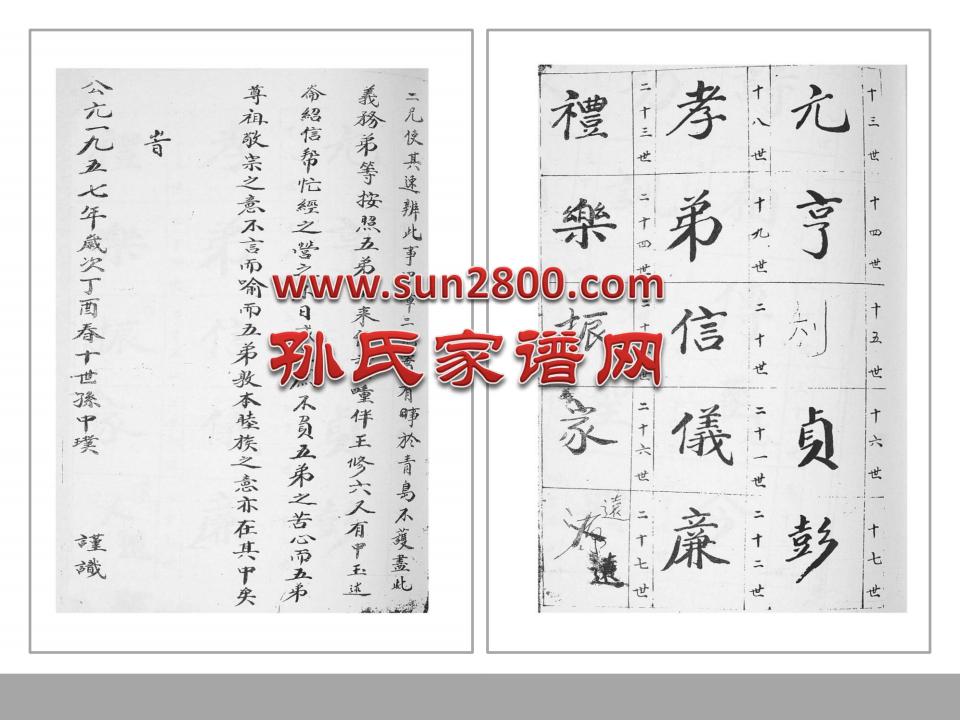 十三世 十四世 十五世 十六世 十七世
亢 亨 利 貞 彭
十八世 十九世 二十世 二十一世 二十二世
孝 弟 信 儀 廉
二十三世 二十四世 二十 二十六世 二十七世
禮 樂 振 家 遠
二兄使其速辦此事 二 有時於青島不護盡此
義務弟等按照五弟 來 瞳伴王修六又有甲玉述
崙紹信幫忙經之營之 日 不負五弟之苦心而五弟
尊祖敬宗之意不言而喻而五弟敦本睦族之意亦在其中矣
旹
公亢一九五七年歲次丁酉春十世孫甲璞 謹識
www.sun2800.com
孙氏家谱网